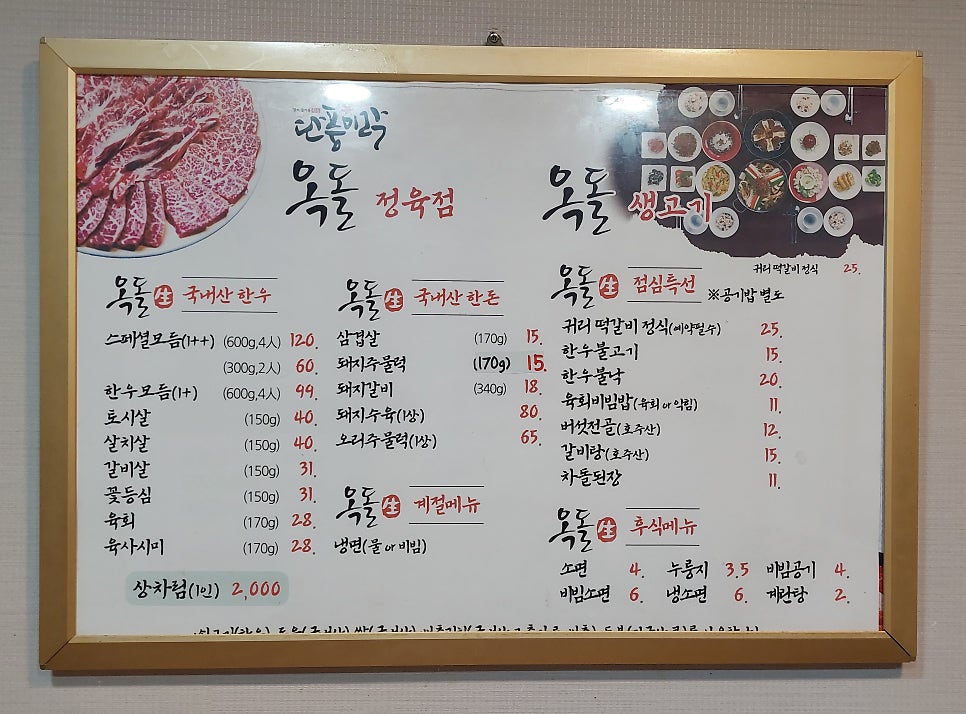 단풍미락
옥돌 정육점
옥돌 생고기
귀리 떡갈비 정식 25.
옥돌 生 국내산 한우
스페셜모듬(1++) (600g,4人) 120.
(300g,2人) 60.
한우모듬(1+) (600g,4人) 99.
토시살 (150g) 40.
살치살 (150g) 40.
갈비살 (150g) 31.
꽃등심 (150g) 31.
육회 (170g) 28.
육사시미 (170g) 28.
상차림(1인) 2,000
옥돌 生 국내산 한돈
삼겹살 (170g) 15.
돼지주물럭 (170g) 15.
돼지갈비 (340g) 18.
돼지수육(1상) 80.
오리주물럭(1상) 65.
옥돌 生 계절메뉴
냉면(물 or 비빔)
옥돌 生 점심특선 ※공기밥 별도
귀리 떡갈비 정식(예약필수) 25.
한우불고기 15.
한우불낙 20.
육회비빔밥(육회 or 익힘) 11.
버섯전골(호주산) 12.
갈비탕(호주산) 15.
차돌된장 11.
옥돌 生 후식메뉴
소면 4. 누룽지 3.5 비빔공기 4.
비빔소면 6. 냉소면 6. 계란탕 2.